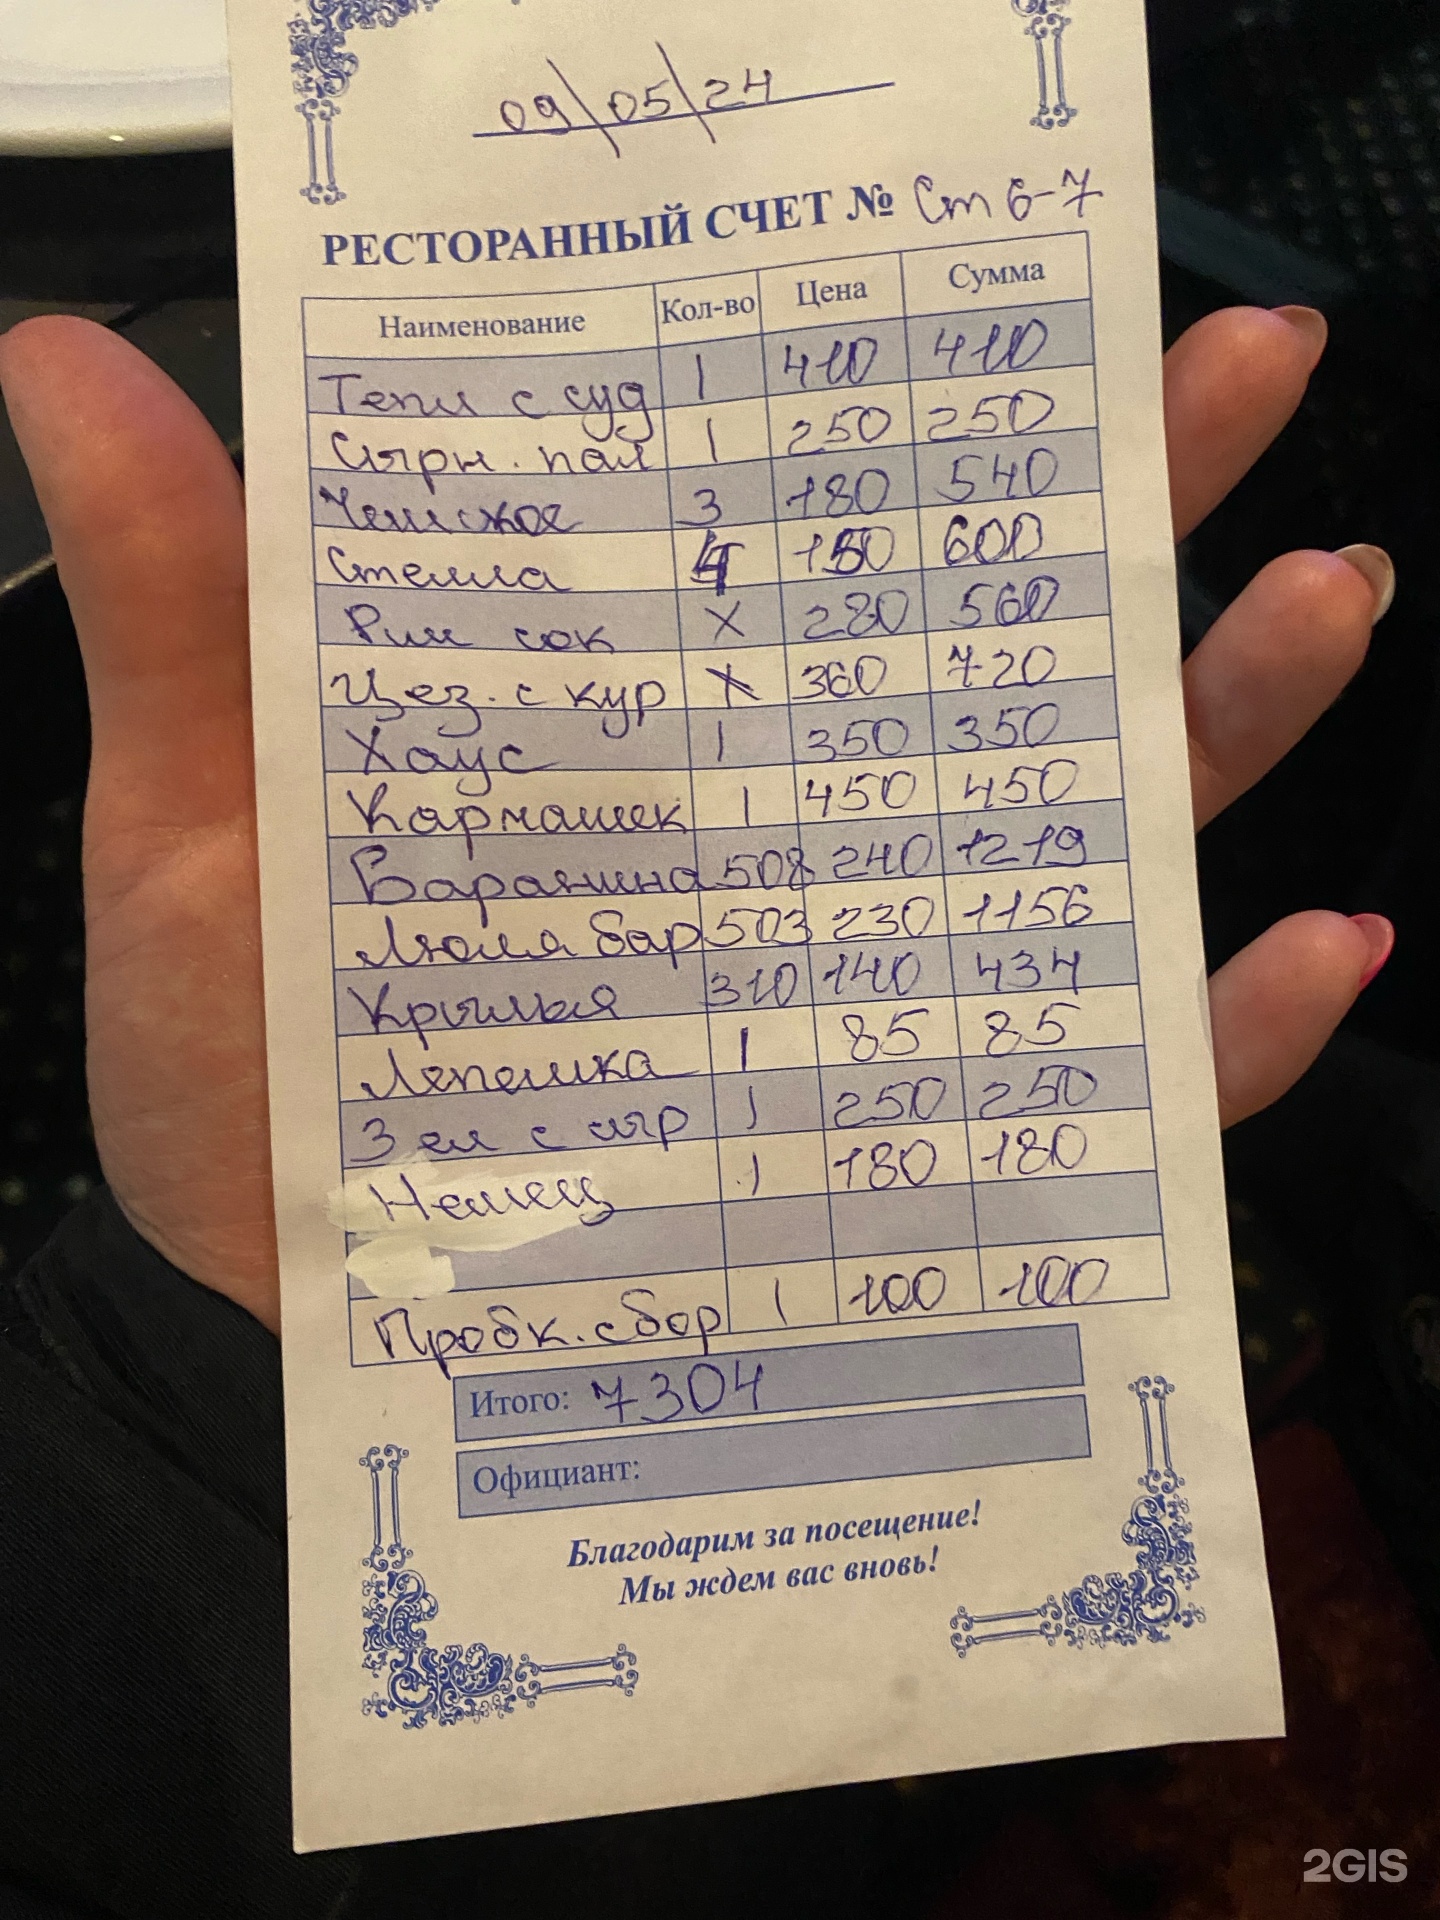 09\05\24
РЕСТОРАННЫЙ СЧЕТ № Ст 6-7
Наименование Кол-во Цена Сумма
Тепл с суд 1 410 410
Сырн. пал 1 250 250
Чешское 3 180 540
Стелла 4 150 600
Рич сок X 280 560
Цез. с кур X 360 720
Хаус 1 350 350
Кармашек 1 450 450
Баранина 508 240 1219
Люля бар 503 230 1156
Крылья 310 140 434
Лепешка 1 85 85
Зел с сыр 1 250 250
Немец 1 180 180
Пробк. сбор 1 100 100
Итого: 7304
Официант:
Благодарим за посещение!
Мы ждем вас вновь!
2GIS